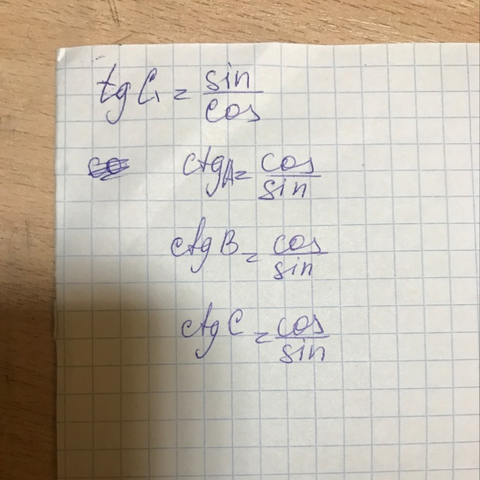 tg C = sin/cos
ctg A = cos/sin
ctg B = cos/sin
ctg C = cos/sin